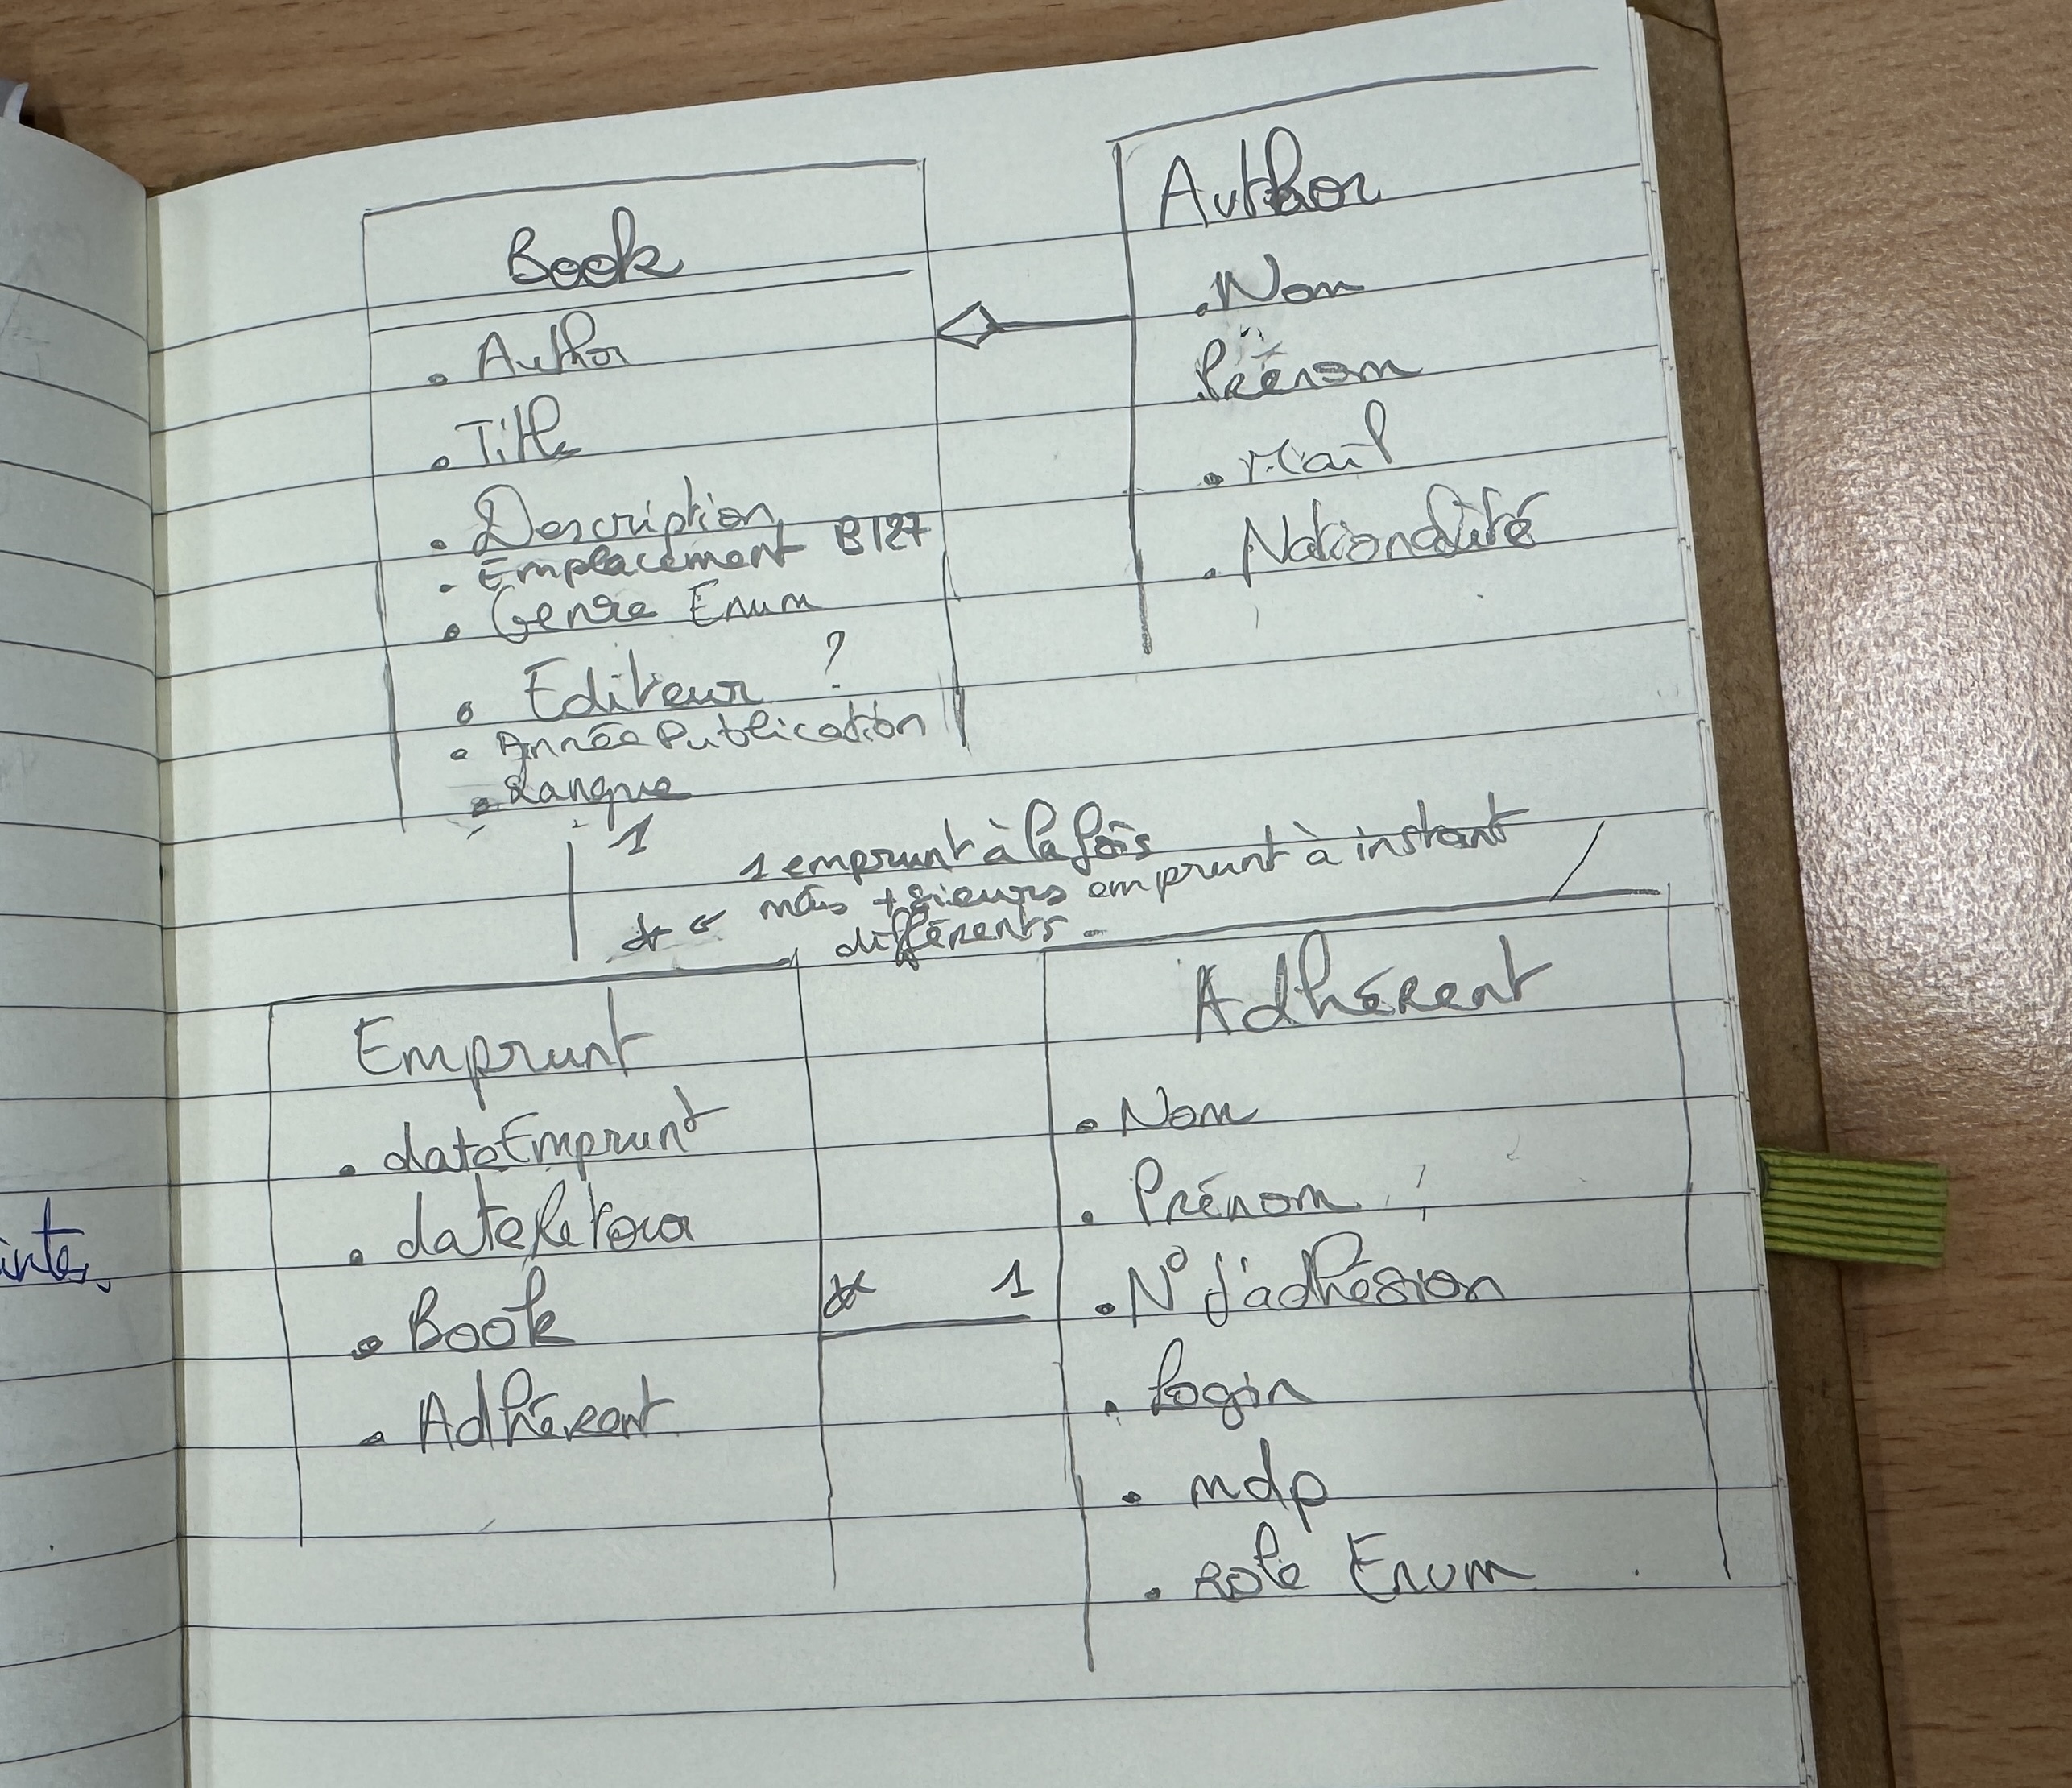 Book
• Author
• Title
• Description
- Emplacement B127
• Genre Enum
• Editeur ?
• Année Publication
• Langue
Author
• Nom
• Prénom
• Mail
• Nationalité
1
1 emprunt à la fois
* ← mais +sieurs emprunt à instant
différents.
Emprunt
• dateEmprunt
• dateRetour
• Book
• Adhérent
* 1
Adhérent
• Nom
• Prénom
• N° d'adhésion
• login
• mdp
• role Enum